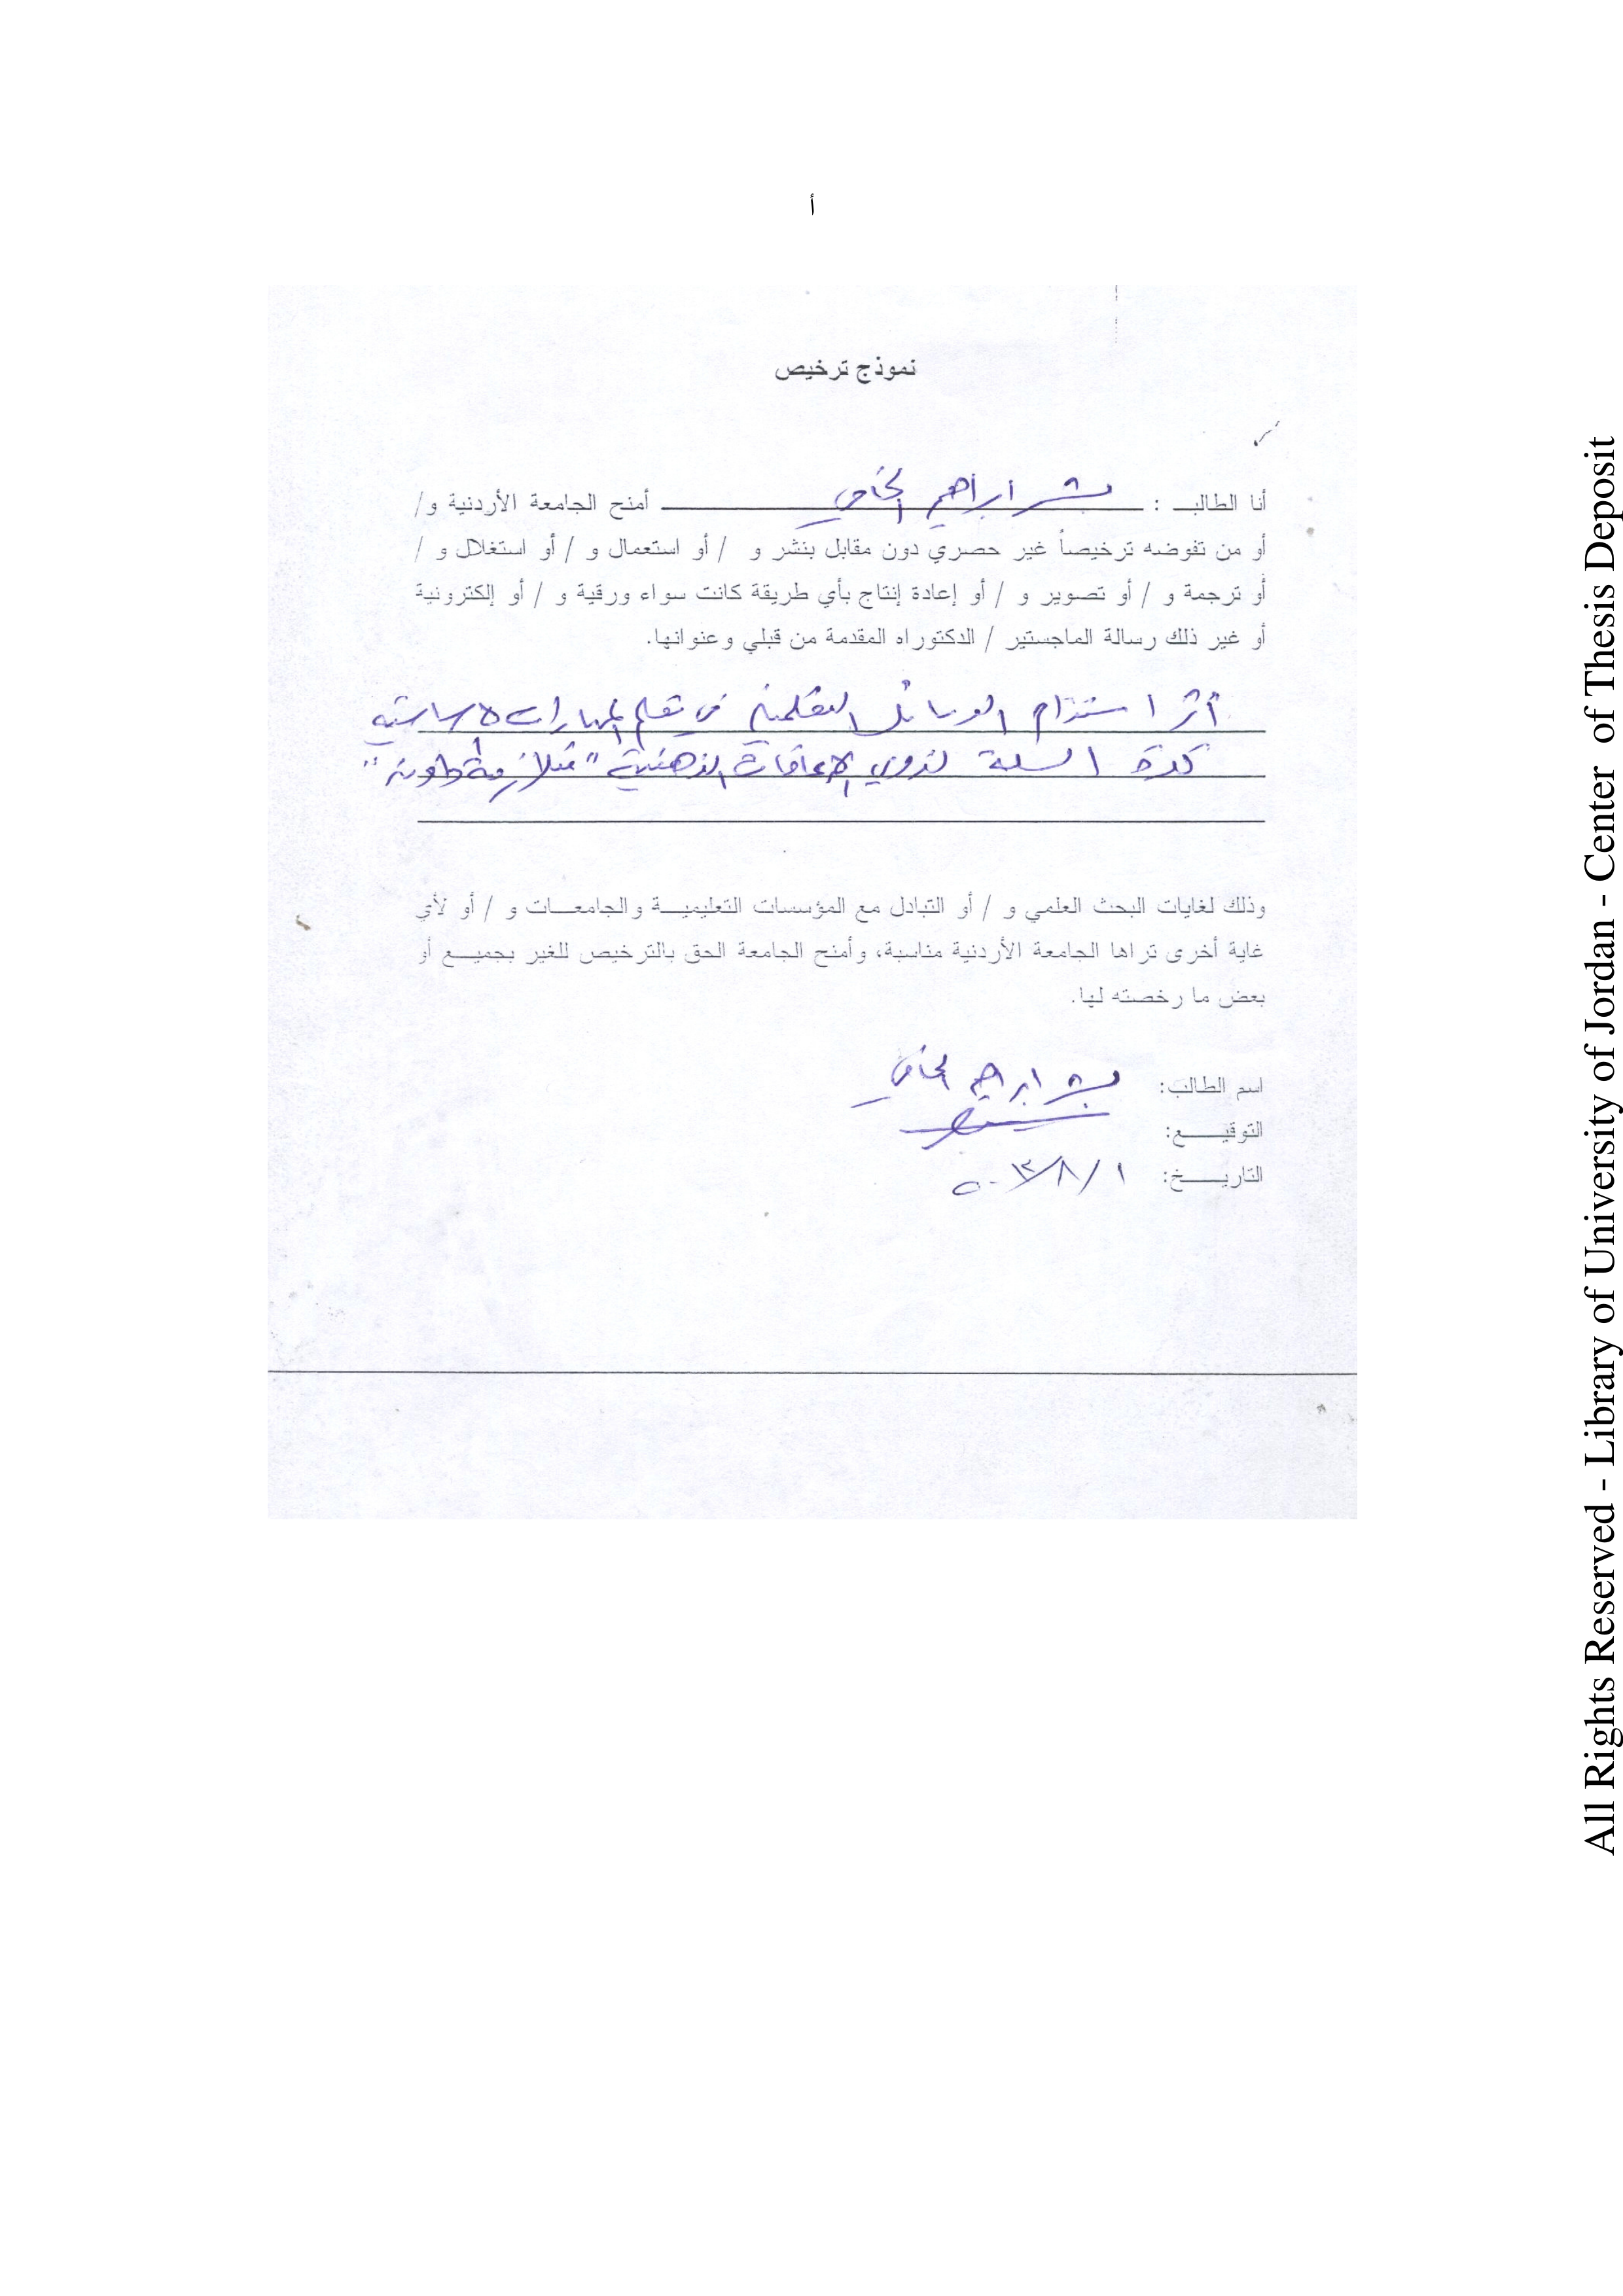 أ
نموذج ترخيص
أنا الطالب : بشر ابراهيم أمنح الجامعة الأردنية و/
أو من تفوضه ترخيصاً غير حصري دون مقابل بنشر و / أو استعمال و / أو استغلال و /
أو ترجمة و / أو تصوير و / أو إعادة إنتاج بأي طريقة كانت سواء ورقية و / أو إلكترونية
أو غير ذلك رسالة الماجستير / الدكتوراه المقدمة من قبلي وعنوانها.
أثر استخدام الوسائل التعليمية في تعلم المهارات الاساسية
لكرة السلة لذوي الإعاقات الذهنية "متلازمة داون"
وذلك لغايات البحث العلمي و / أو التبادل مع المؤسسات التعليمية والجامعات و / أو لأي
غاية أخرى تراها الجامعة الأردنية مناسبة، وأمنح الجامعة الحق بالترخيص للغير بجميع أو
بعض ما رخصته لها.
اسم الطالب: بشر ابراهيم
التوقيع:
التاريخ: ١/٨/
All Rights Reserved - Library of University of Jordan - Center of Thesis Deposit